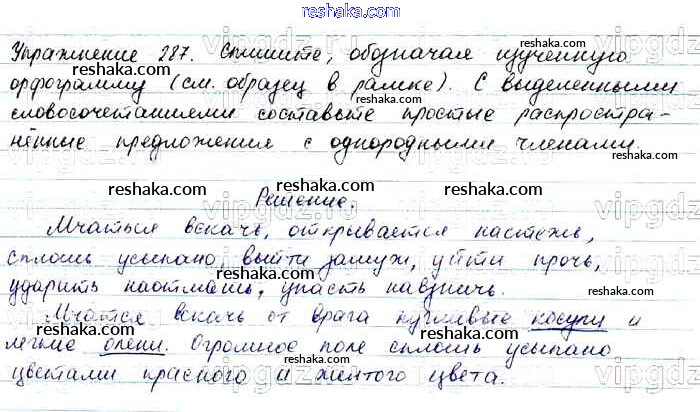 reshaka.com
Упражнение 287. Спишите, обозначая изученную
орфограмму (см. образец в рамке). С выделенными
словосочетаниями составьте простые распростра-
нённые предложения с однородными членами.
Решение.
Мчаться вскачь, открывается настежь,
сплошь усыпано, выйти замуж, уйти прочь,
ударить наотмашь, упасть навзничь.
Мчатся вскачь от врага пугливые косули и
легкие олени. Огромное поле сплошь усыпано
цветами красного и желтого цвета.